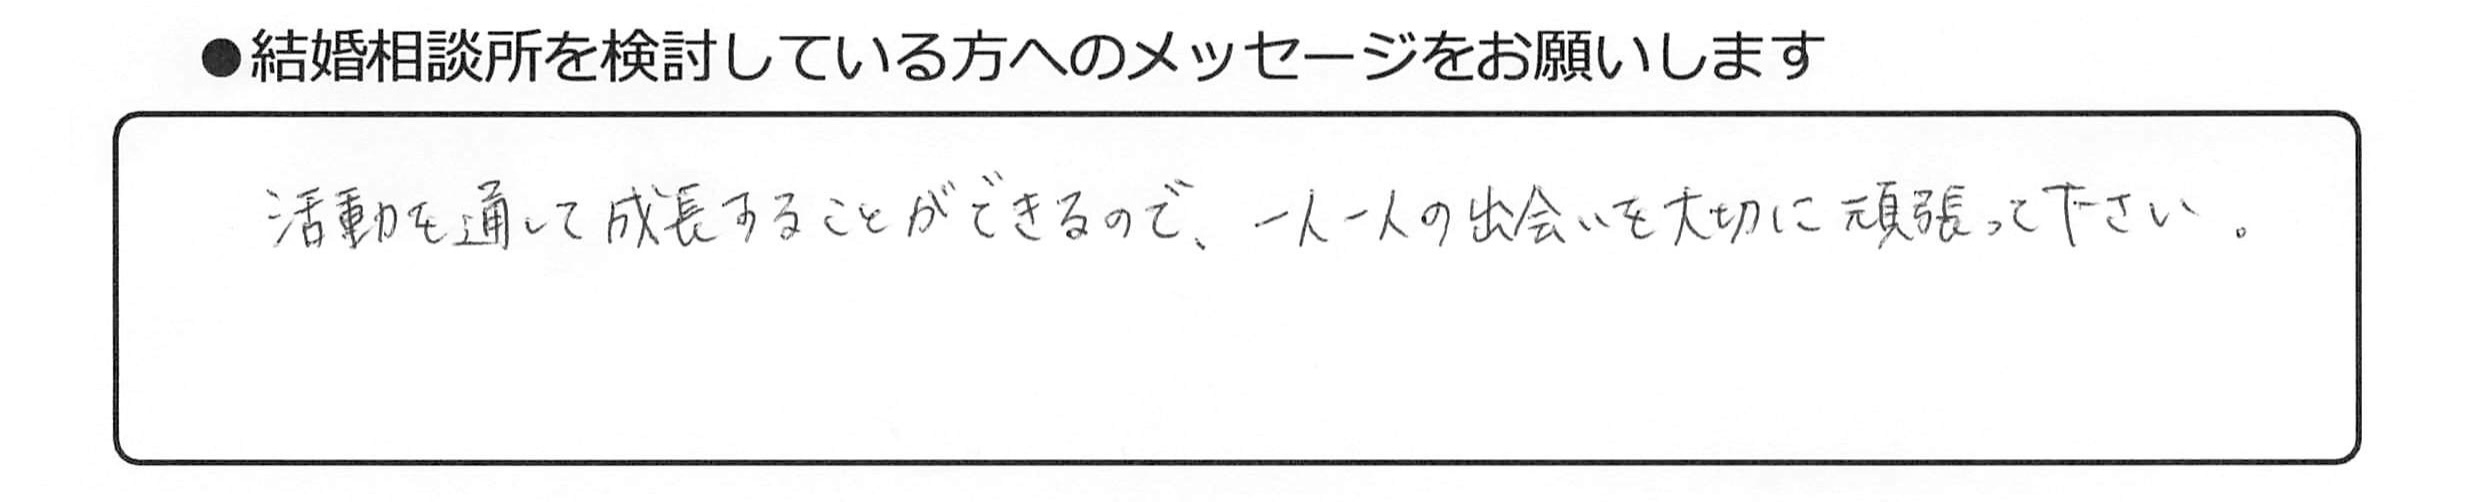 ●結婚相談所を検討している方へのメッセージをお願いします
活動を通して成長することができるので、一人一人の出会いを大切に頑張って下さい。